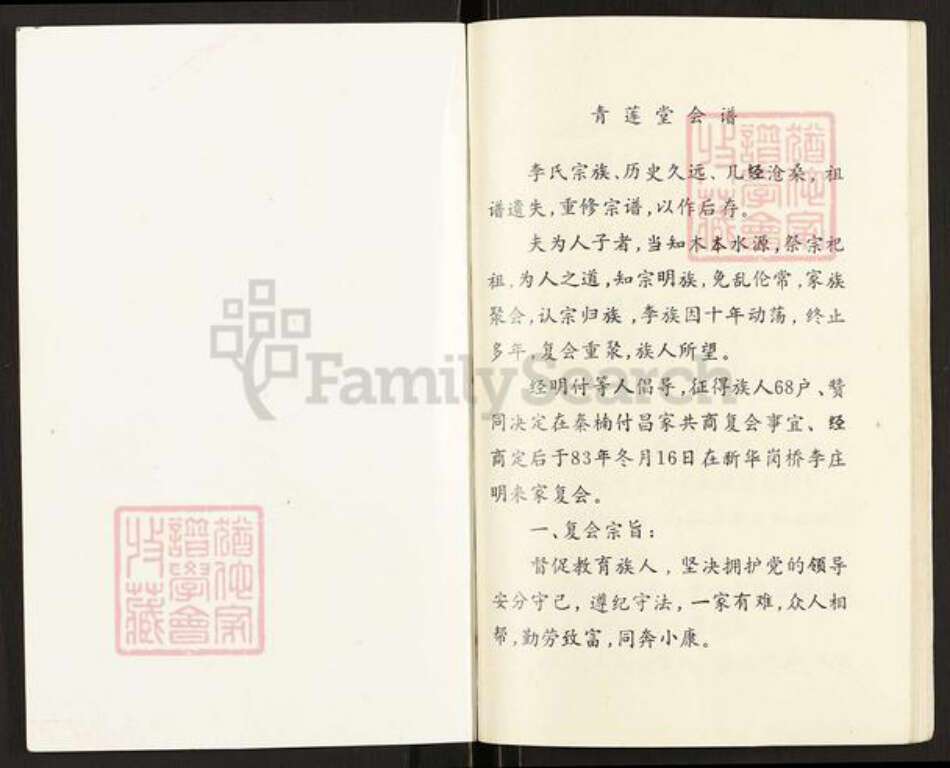 青莲堂会谱
李氏宗族、历史久远、几经沧桑，祖
谱遗失，重修宗谱，以作后存。
夫为人子者，当知木本水源，祭宗祀
祖，为人之道，知宗明族，免乱伦常，家族
聚会，认宗归族，李族因十年动荡，终止
多年，复会重聚，族人所望。
经明付等人倡导，征得族人68户、赞
同决定在秦楠付昌家共商复会事宜、经
商定后于83年冬月16日在新华岗桥李庄
明来家复会。
一、复会宗旨：
督促教育族人，坚决拥护党的领导
安分守己，遵纪守法，一家有难，众人相
帮，勤劳致富，同奔小康。
FamilySearch
譜學會
收藏